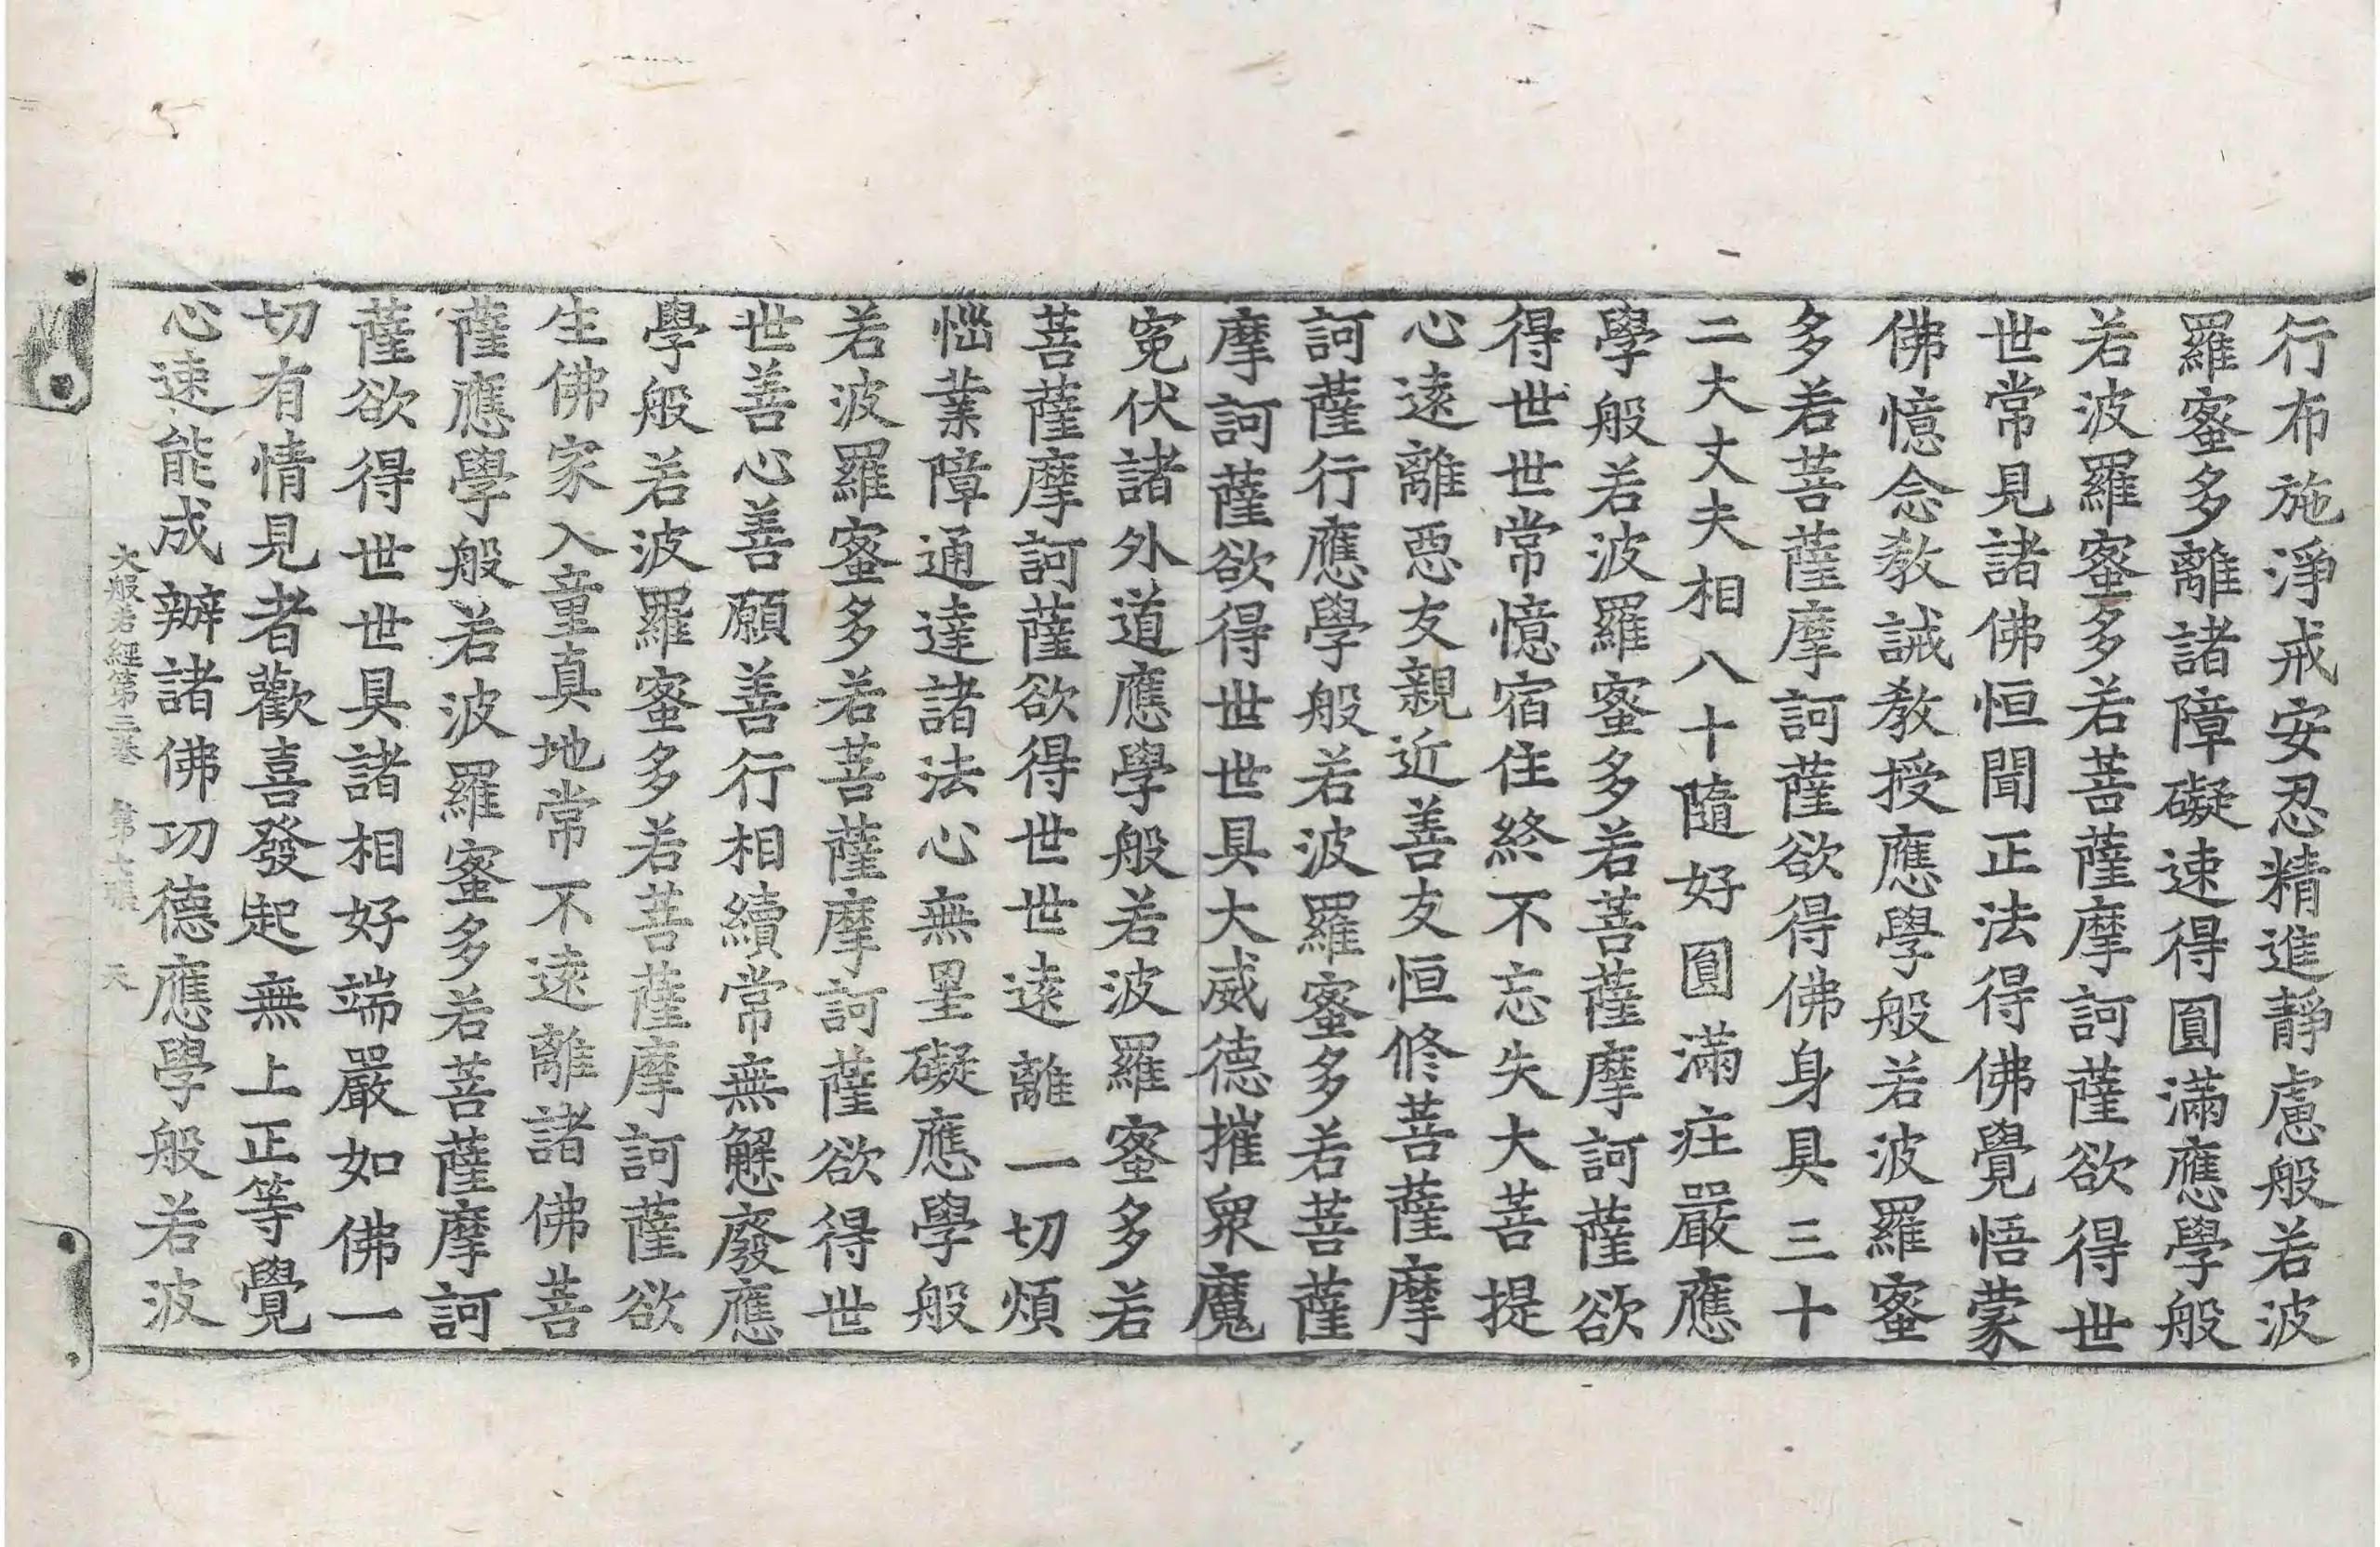 行布施淨戒安忍精進靜慮般若波
羅蜜多離諸障礙速得圓滿應學般
若波羅蜜多若菩薩摩訶薩欲得世
世常見諸佛恒聞正法得佛覺悟蒙
佛憶念教誡教授應學般若波羅蜜
多若菩薩摩訶薩欲得佛身具三十
二大丈夫相八十隨好圓滿庄嚴應
學般若波羅蜜多若菩薩摩訶薩欲
得世世常憶宿住終不忘失大菩提
心遠離惡友親近善友恒修菩薩摩
訶薩行應學般若波羅蜜多若菩薩
摩訶薩欲得世世具大威德摧衆魔
寃伏諸外道應學般若波羅蜜多若
菩薩摩訶薩欲得世世遠離一切煩
惱業障通達諸法心無罣礙應學般
若波羅蜜多若菩薩摩訶薩欲得世
世善心善願善行相續常無懈廢應
學般若波羅蜜多若菩薩摩訶薩欲
生佛家入童真地常不遠離諸佛菩
薩應學般若波羅蜜多若菩薩摩訶
薩欲得世世具諸相好端嚴如佛一
切有情見者歡喜發起無上正等覺
心速能成辦諸佛功德應學般若波
大般若經第三卷 第 天